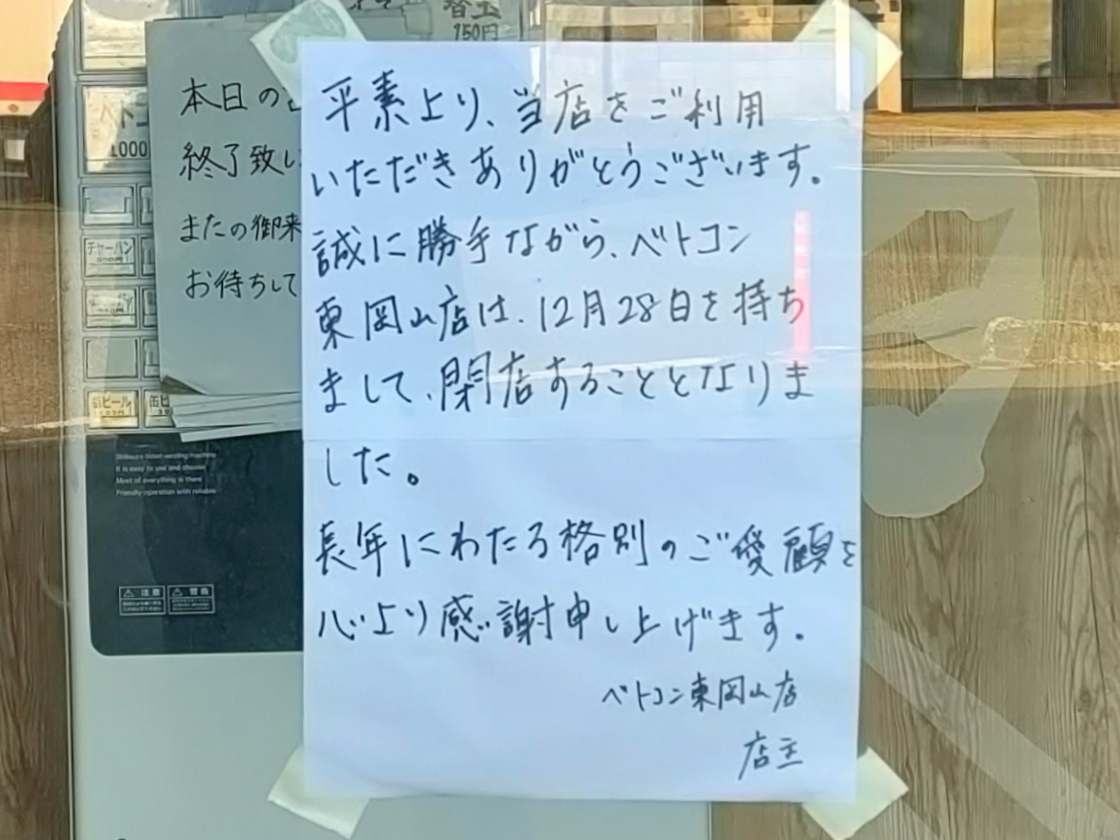 替玉
150円
本日の
終了致し
またの御来
お待ちして
平素より、当店をご利用
いただきありがとうございます。
誠に勝手ながら、ベトコン
東岡山店は、12月28日を持ち
まして、閉店することとなりま
した。
長年にわたる格別のご愛顧を
心より感謝申し上げます。
ベトコン東岡山店
店主
ベトコ
1000
チャーハン
缶ビール
It is easy to use and choose
Most of everything is there
Friendly operation with reliable
注意
警告